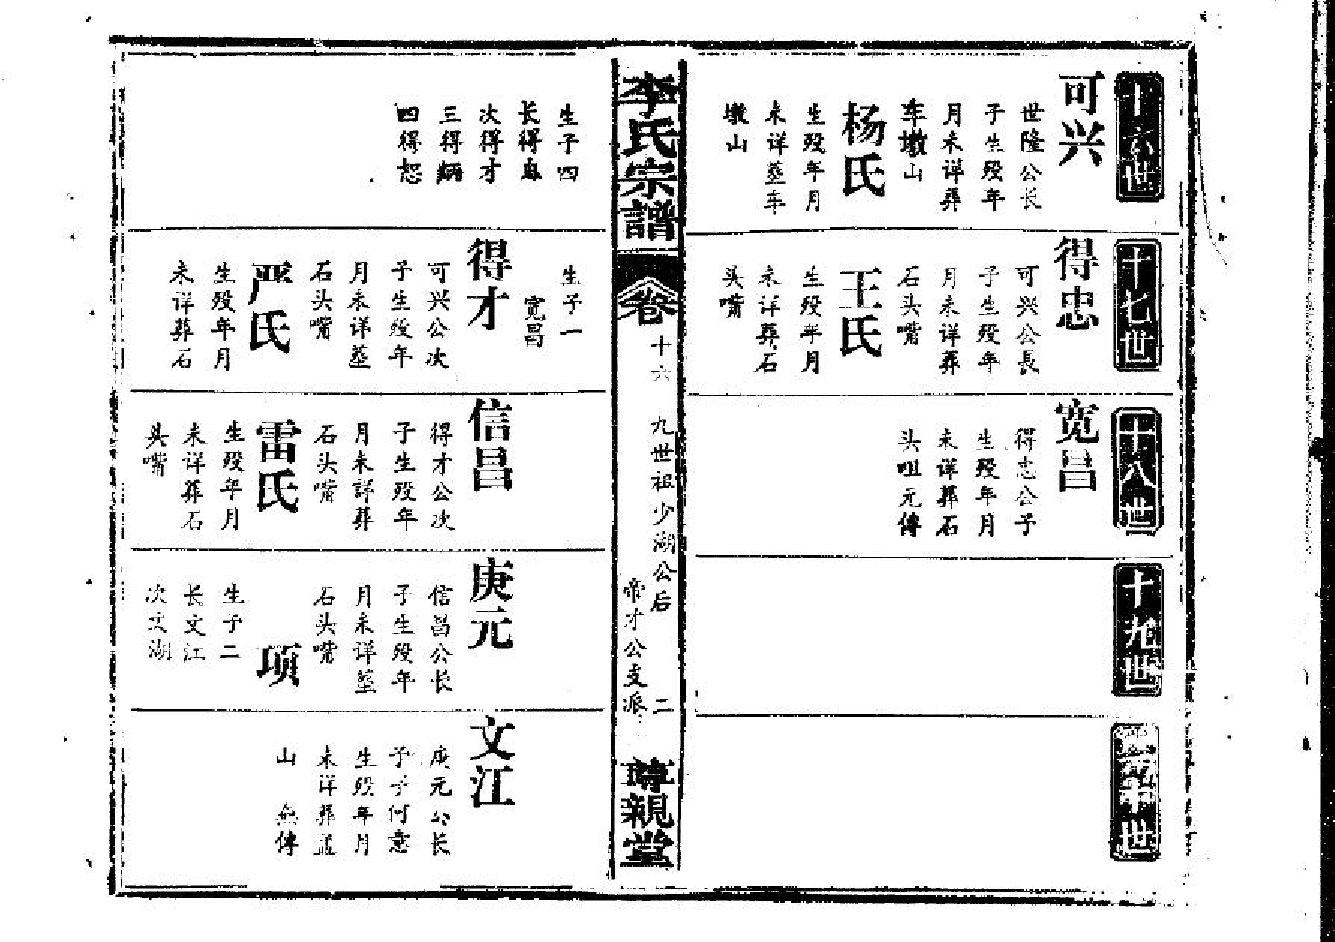 十六世
可兴
世隆公长
子生殁年
月未详葬
车墩山
杨氏
生殁年月
未详葬车
墩山
十七世
得忠
可兴公長
子生殁年
月未详葬
石头嘴
王氏
生殁年月
未详葬石
头嘴
十八世
宽昌
得忠公子
生殁年月
未详葬石
头咀元傳
十九世
二十世
李氏宗譜
卷
十六
九世祖少湖公后
帝才公支派
二
尊親堂
生子四
长得忠
次得才
三得炳
四得恕
生子一
宽昌
得才
可兴公次
子生殁年
月未详葬
石头嘴
严氏
生殁年月
未详葬石
信昌
得才公次
子生殁年
月未詳葬
石头嘴
雷氏
生殁年月
未详葬石
头嘴
庚元
信昌公长
子生殁年
月未详葬
石头嘴
项
生子二
长文江
次文湖
文江
庚元公长
子子何意
生殁年月
未详葬
山 無傳